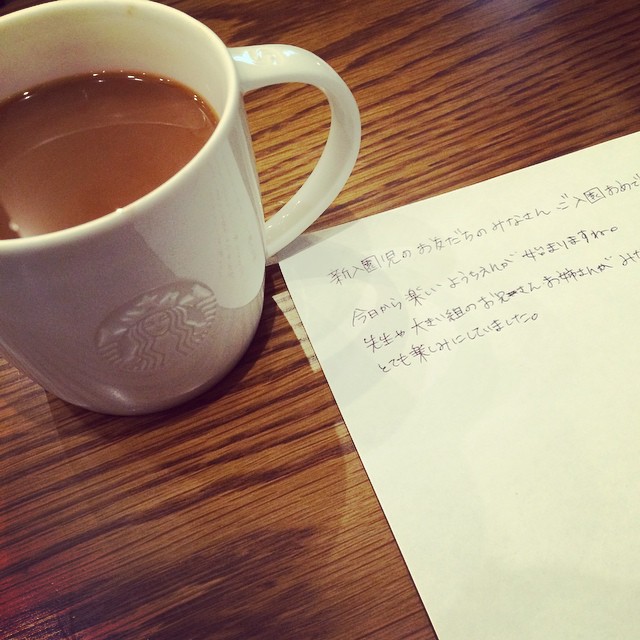 新入園児のお友だちのみなさん ご入園おめで
今日から楽しい ようちえんが 始まりますね。
先生や 大きい組のお兄さんお姉さんが みな
とても楽しみにしていました。